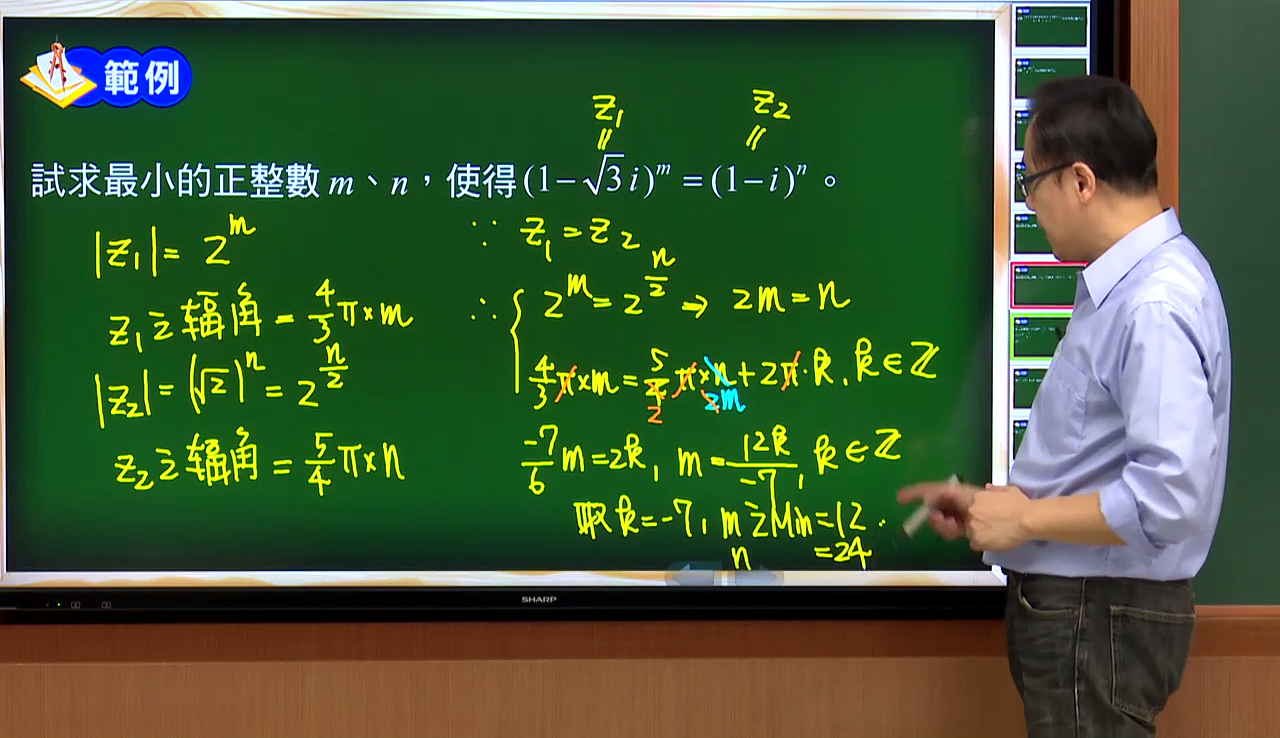 範例
z₁ z₂
= =
試求最小的正整數 m、n，使得 (1−√3 i)ᵐ = (1−i)ⁿ。
|z₁| = 2ᵐ
z₁之輻角 = 4/3 π×m
|z₂| = (√2)ⁿ = 2^(n/2)
z₂之輻角 = 5/4 π×n
∵ z₁ = z₂
∴ { 2ᵐ = 2^(n/2) ⇒ 2m = n
4/3 π×m = 5/4 π×n + 2π·k, k∈ℤ
2 2m
-7/6 m = 2k, m = 12k/-7, k∈ℤ
取 k = -7, m之Min = 12.
n = 24
SHARP